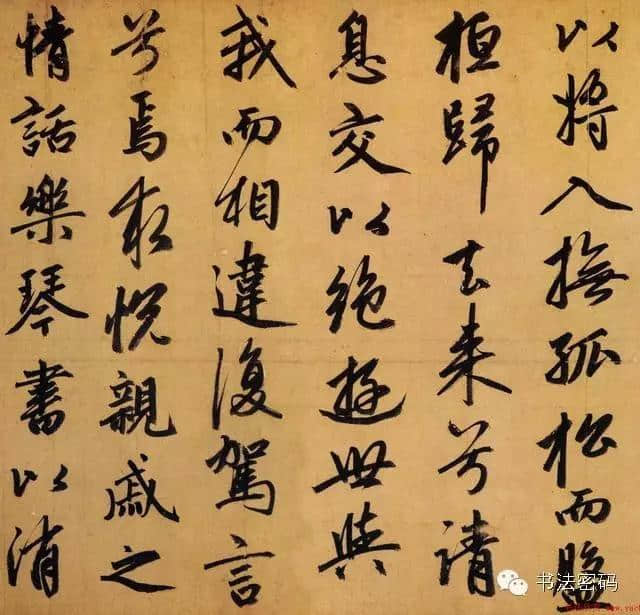 以將入撫孤松而盤
桓歸去来兮請
息交以絶遊世與
我而相違復駕言
兮焉求悦親戚之
情話樂琴書以消
书法密码